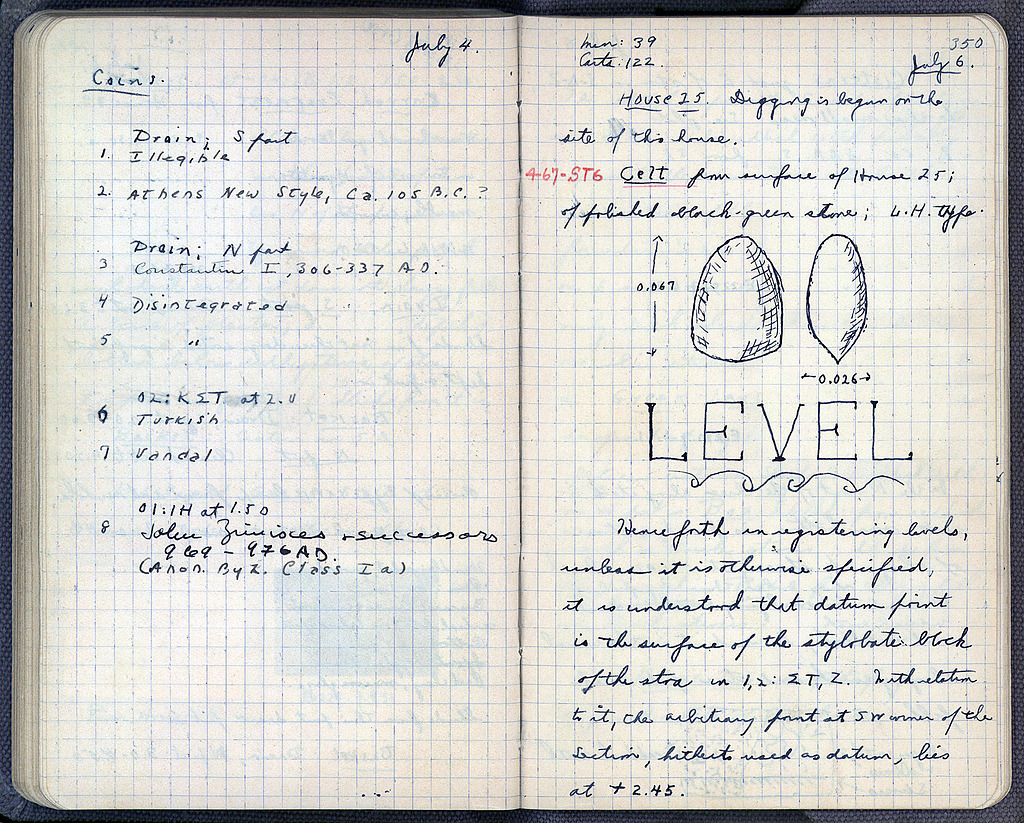 July 4.
Coins.
Drain; S part
1. Illegible
2. Athens New Style, Ca. 105 B.C.?
Drain; N part
3 Constantin I, 306-337 A.D.
4 Disintegrated
5 "
02: ΚΣΤ at 2.0
6 Turkish
7 Vandal
01:ΙΗ at 1.50
8 John Zimisces + successors
969 - 976 A.D.
(Anon. Byz. Class I a)
350
Men: 39
Carts: 122.
July 6.
House 25. Digging is begun on the
site of this house.
467-ST6 Celt from surface of House 25;
of polished black-green stone; L.H. type.
0.067
0.026
LEVEL
Henceforth in registering levels,
unless it is otherwise specified,
it is understood that datum point
is the surface of the stylobate block
of the stoa in 1,2: ΣΤ, Ζ. With relation
to it, the arbitrary point at SW corner of the
Section, hitherto used as datum, lies
at + 2.45.